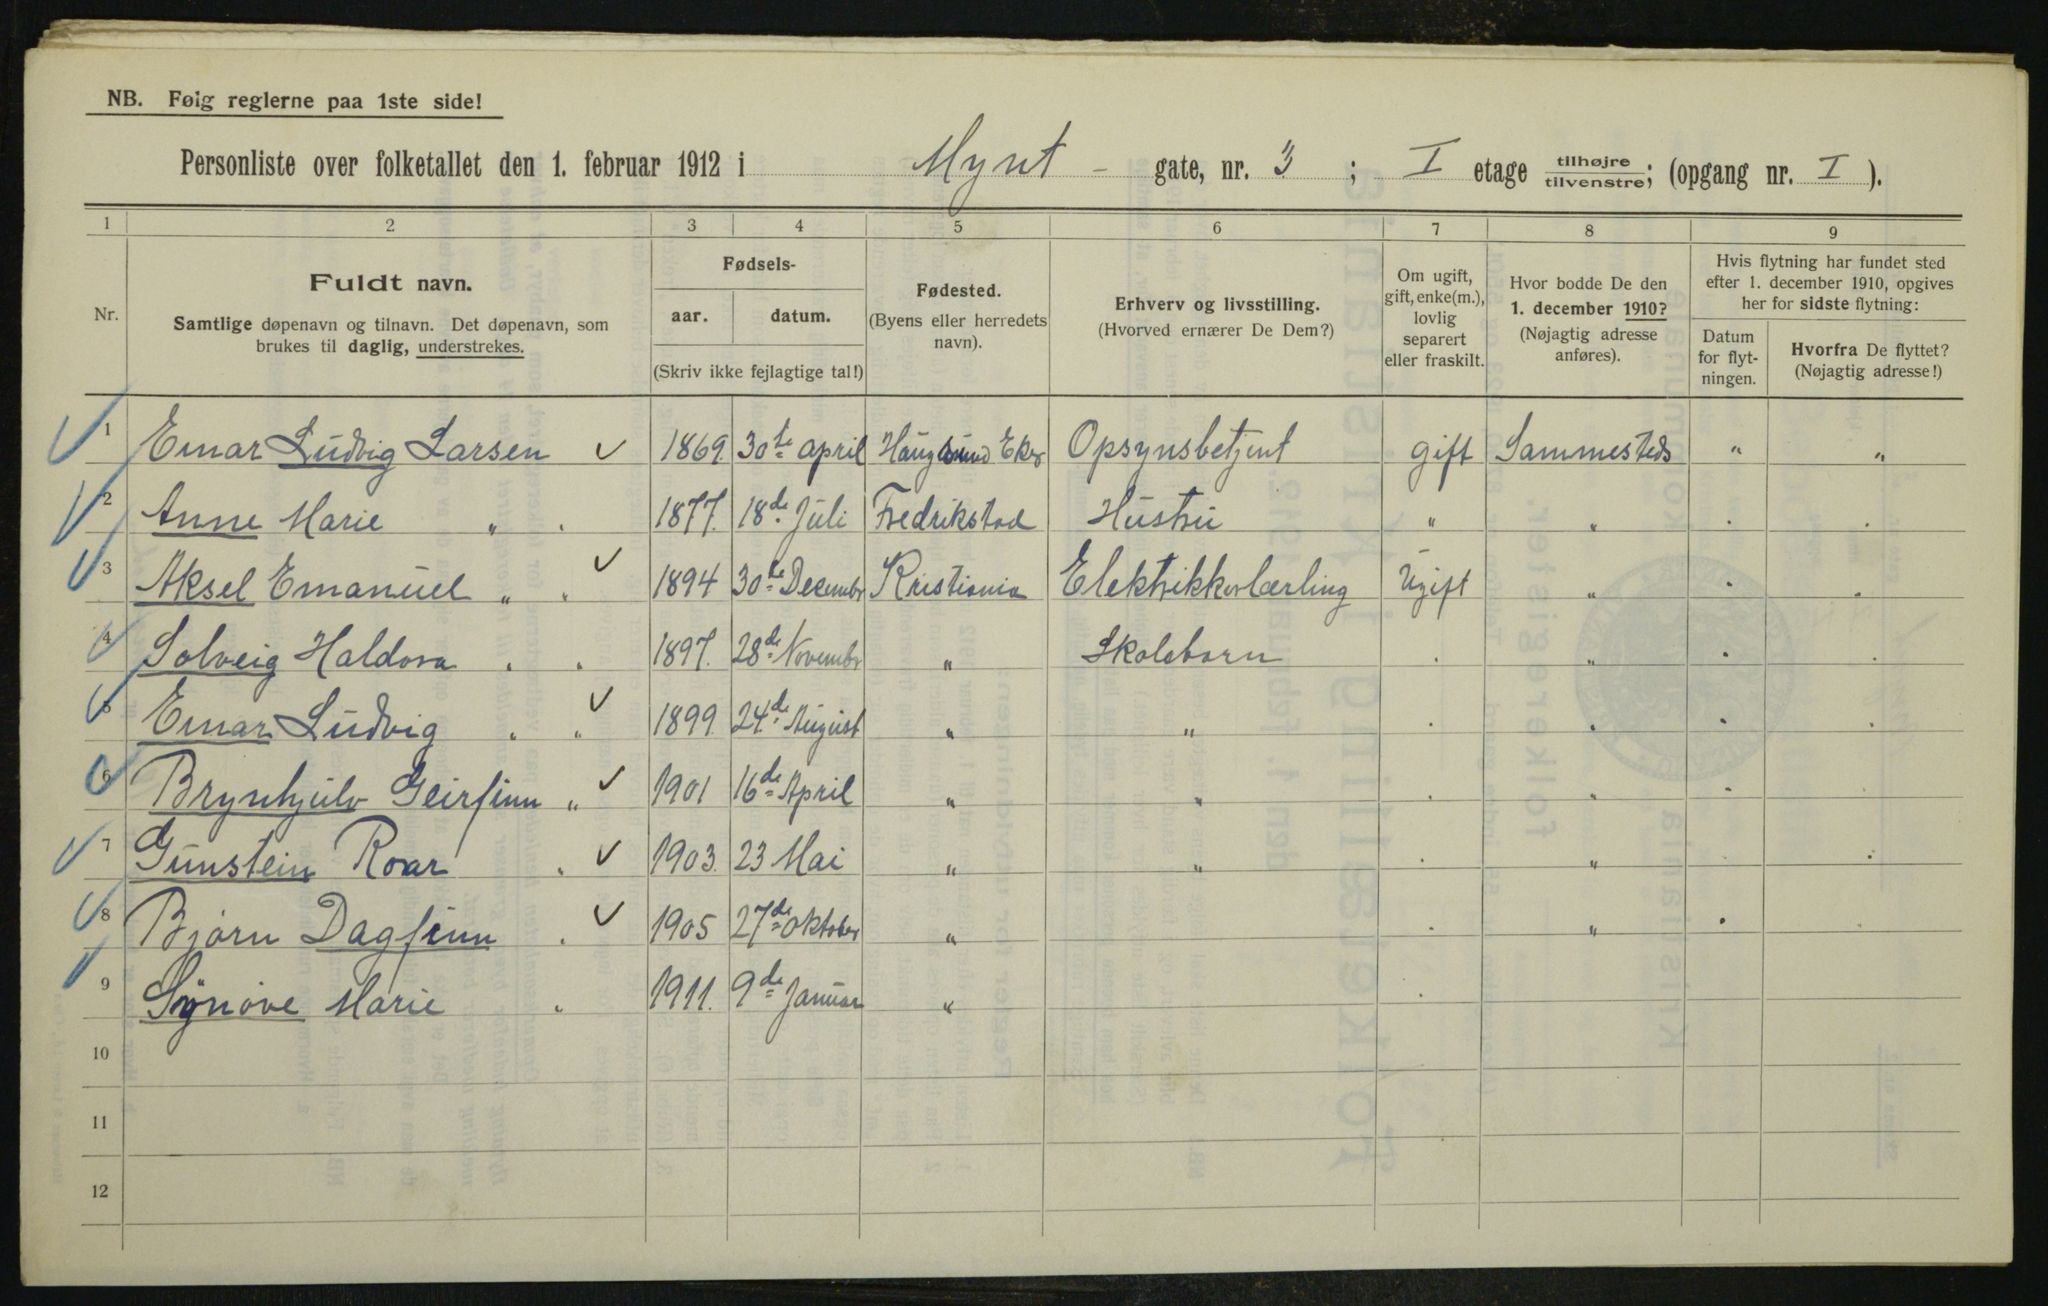 NB. Følg reglerne paa 1ste side!
Personliste over folketallet den 1. februar 1912 i Mynt - gate, nr. 3 ; I etage tilhøjre / tilvenstre; (opgang nr. I ).
1 2 3 4 5 6 7 8 9
Nr.
Fuldt navn.
Samtlige døpenavn og tilnavn. Det døpenavn, som
brukes til daglig, understrekes.
Fødsels-
aar. datum.
(Skriv ikke fejlagtige tal!)
Fødested.
(Byens eller herredets
navn).
Erhverv og livsstilling.
(Hvorved ernærer De Dem?)
Om ugift,
gift, enke(m.),
lovlig
separert
eller fraskilt.
Hvor bodde De den
1. december 1910?
(Nøjagtig adresse
anføres).
Hvis flytning har fundet sted
efter 1. december 1910, opgives
her for sidste flytning:
Datum
for flyt-
ningen.
Hvorfra De flyttet?
(Nøjagtig adresse!)
1 Einar Ludvig Larsen 1869. 30te april Haugsund Eker Opsynsbetjent gift Sammesteds " "
2 Anne Marie " . 1877. 18de Juli Fredrikstad Hustru " " . .
3 Aksel Emanuel " . 1894 30te Decembr Kristiania Elektrikkerlærling Ugift " . .
4 Solveig Haldora . . 1897. 28de Novembr " Skolebarn . " . .
5 Einar Ludvig . " 1899. 24de August " " . . . .
6 Brynhjulv Geirfinn " 1901 16de April " " . " . .
7 Gunstein Roar . 1903. 23 Mai " " . " . .
8 Bjørn Dagfinn . 1905 27de Oktober " . " . .
9 Synøve Marie . 1911. 9de Januar " .
10
11
12